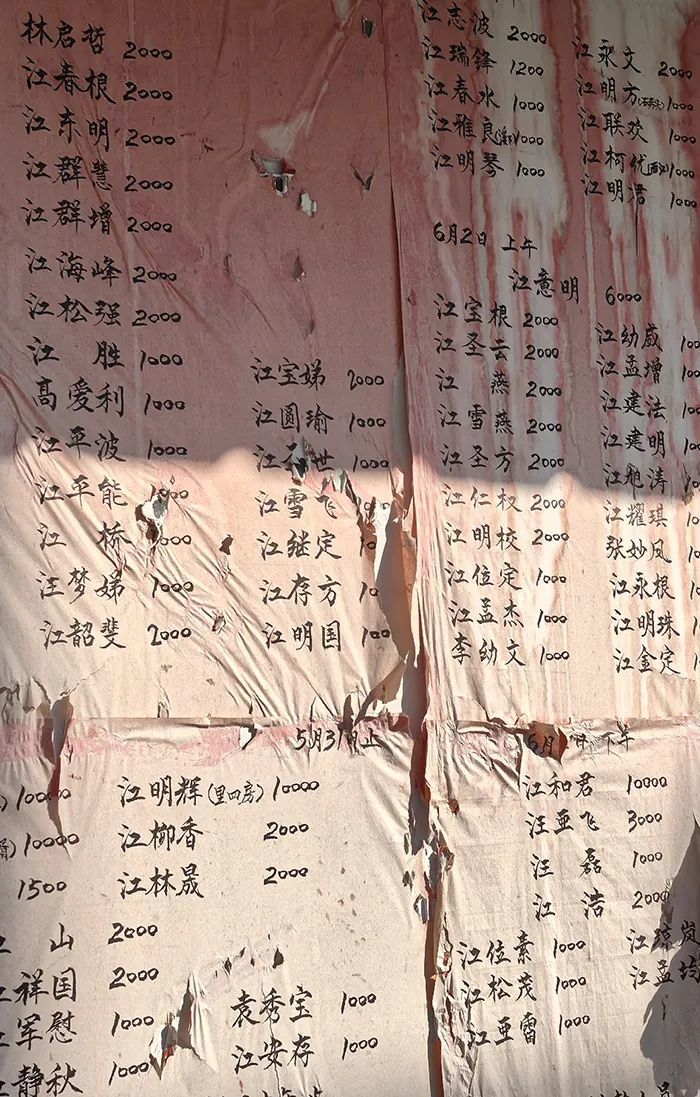 林启哲 2000
江春根 2000
江东明 2000
江群慧 2000
江群增 2000
江海峰 2000
江松强 2000
江 胜 1000
高爱利 1000
江平波 1000
江平能
江 桥
汪梦娣 1000
江韶斐 2000
江宝娣 2000
江圆瑜 1000
1000
江雪飞
江继定
江存方
江明国
江志波 2000
江瑞锋 1200
江春水 1000
江雅良 1000
江明琴 1000
江永文 2000
江明方 1000
江联欢 1000
江柯优 1000
江明君 1000
6月2日 上午
江意明 6000
江宝根 2000
江圣云 2000
江 燕 2000
江雪燕 2000
江圣方 2000
江仁权 2000
江明校 2000
江位定 1000
江孟杰 1000
李幼文 1000
江幼
江孟增
江建法
江建明
江旭涛
江耀琪
张妙凤
江永根
江明珠
江金定
5月31日止
10000
10000
1500
江明辉(里四房) 10000
江柳香 2000
江林晟 2000
山 2000
祥国 2000
军慰 1000
静秋 1000
袁秀宝 1000
江安存 1000
下午
江和君 10000
汪亚飞 3000
汪 磊 1000
江 浩 2000
江位素 1000
江松茂 1000
江亚雷 1000
江琼岚
江孟